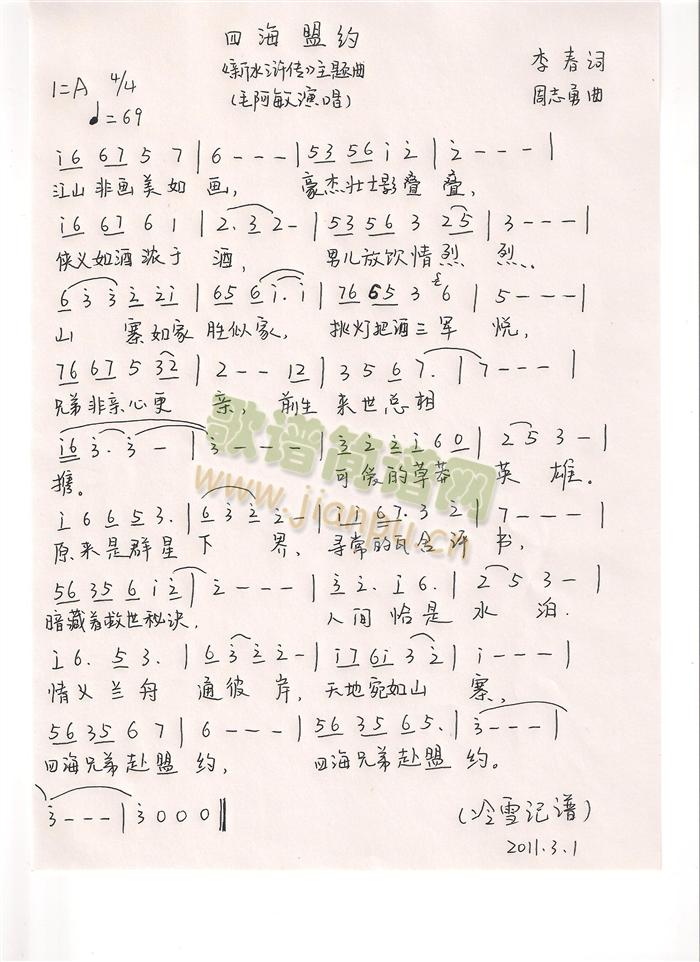 四海盟约
《新水浒传》主题曲
(毛阿敏演唱)
李春词
周志勇曲
1=A 4/4
♩=69
i6 67 5 7 | 6 - - - | 53 56 i 2 | 2 - - - |
江山非画美如画, 豪杰壮士影叠叠,
i6 67 6 1 | 2. 3 2 - | 53 56 3 25 | 3 - - - |
侠义如酒浓于酒, 男儿放饮情烈烈、
6 3 3 2 2i | 65 6 i. i | 76 65 3 6 | 5 - - - |
山寨如家胜似家, 挑灯把酒三军悦,
76 67 5 32 | 2 - - 12 | 3 5 6 7. | 7 - - - |
兄弟非亲心更亲, 前生来世总相
i6 3. 3 - | 3 - - - | 3 2 2 i 6 0 | 2 5 3 - |
携。 可俊的草莽英雄.
i 6 6 5 3. | 6 3 2 2 - | i i 67. 3 2 | 7 - - - |
原来是群星下界, 寻常的瓦舍评书,
56 35 6 i 2 | 2 - - - | 3 2. i 6. | 2 5 3 - |
暗藏着救世秘诀, 人间恰是水泊.
i 6. 5 3. | 6 3 2 2 - | i7 6i 3 2 | i - - - |
情义兰舟通彼岸, 天地宛如山寨,
56 35 6 7 | 6 - - - | 56 35 65. | 3 - - - |
四海兄弟赴盟约, 四海兄弟赴盟约。
3 - - - | 3 0 0 0 ‖
(冷雪记谱)
2011.3.1
歌谱简谱网
www.jianpu.cn